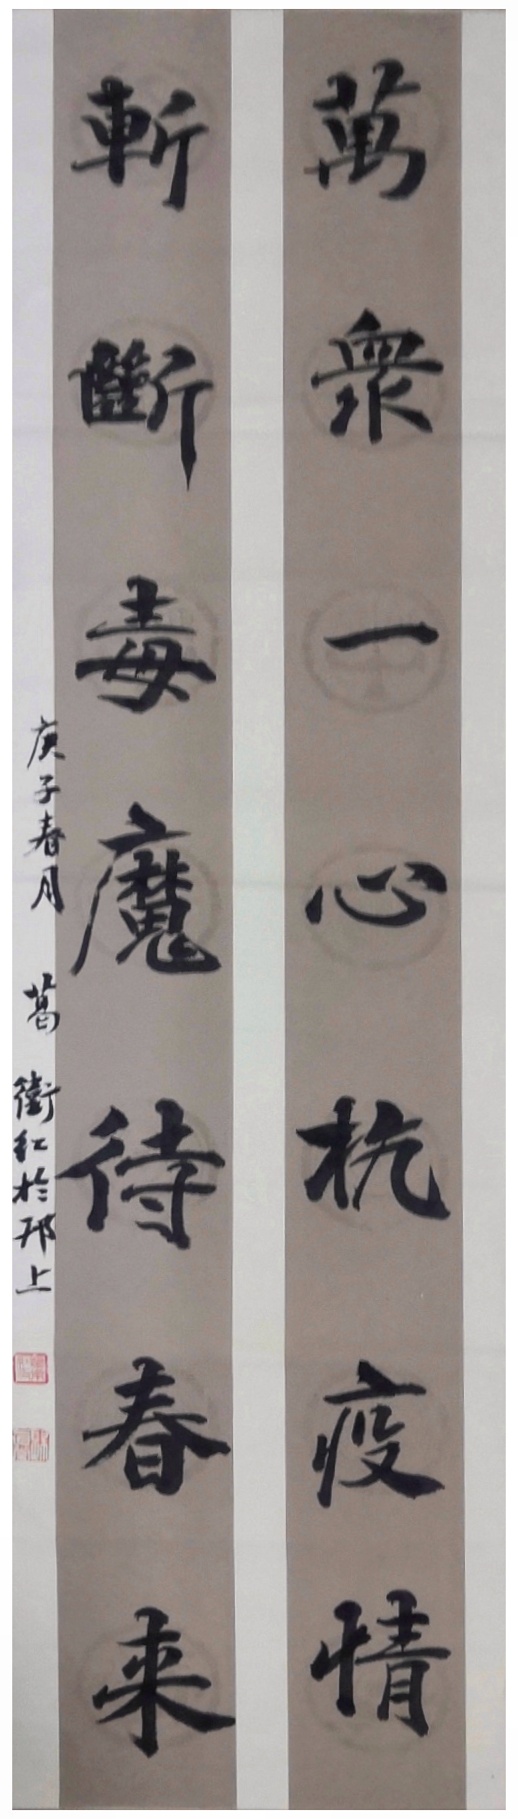 萬衆一心杭疫情
斬斷毒魔待春来
庚子春月 葛衛紅於邗上